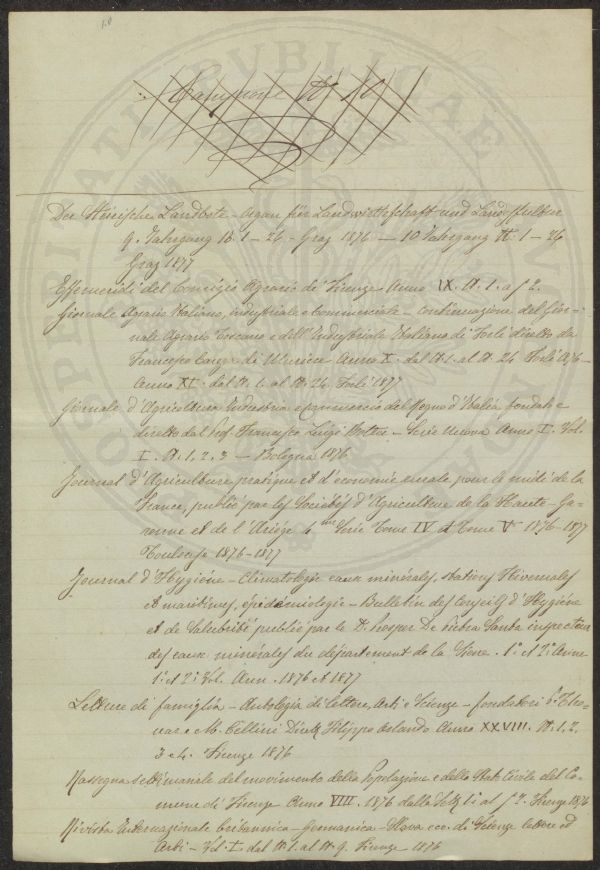 10
Campione N. 10
PROSPERITATI PVBLICAE
Der Steirische Landbote – Organ für Landwirthschaft und Landeskultur
9. Jahrgang N. 1 – 26 – Graz 1876 — 10 Jahrgang N. 1 – 26
Graz 1877
Effemeridi del Comizio Agrario di Firenze Anno IX. N. 1. a
Giornale Agrario Italiano, industriale e commerciale – continuazione del Gior-
nale Agrario Toscano e dell'Industriale Italiano di Forlì diretto da
Anno X. dal N. 1. al N. 24 Forlì 1876 –
Anno XI. dal N. 1. al N. 24. Forlì 1877
Giornale d'Agricoltura Industria e commercio del Regno d'Italia, fondato e
diretto dal Prof. Francesco Luigi Botter – Serie Nuova Anno I. Vol.
I. N. 1, 2, 3 — Bologna 1876
Journal d'Agriculture pratique et d'économie rurale pour le midi de la
France, publié par les Sociétés d'Agriculture de la Haute-Ga-
ronne et de l'Ariége 4me Serie Tome IV et Tome V – 1876–1877
Toulouse 1876–1877
Journal d'Hygiéne – Climatologie eaux minérales, stations Hivernales
et maritimes, épidémiologie – Bulletin des conseils d'Hygiéne
et de Salubrité publié par le D. Prosper De Pietra Santa inspecteur
des eaux minérales du département de la Siene. 1e et 2e Anne
1e et 2e Vol. Ann. 1876 et 1877
Letture di famiglia – Antologia di lettere, Arti e Scienze – fondatori P. Thou-
var e M. Cellini Dirett Filippo Orlando Anno XXVIII. N. 1, 2,
3 e 4. Firenze 1876
Rassegna settimanale del movimento della Popolazione e dello Stato Civile del Co-
mune di Firenze Anno VIII. 1876 dalla Sett 1a al Firenze 1876
Rivista Internazionale britannica – Germanica – Slava ecc. di Scienze lettere ed
Arti – Vol. I. dal N. 1. al N. 9. Firenze 1876